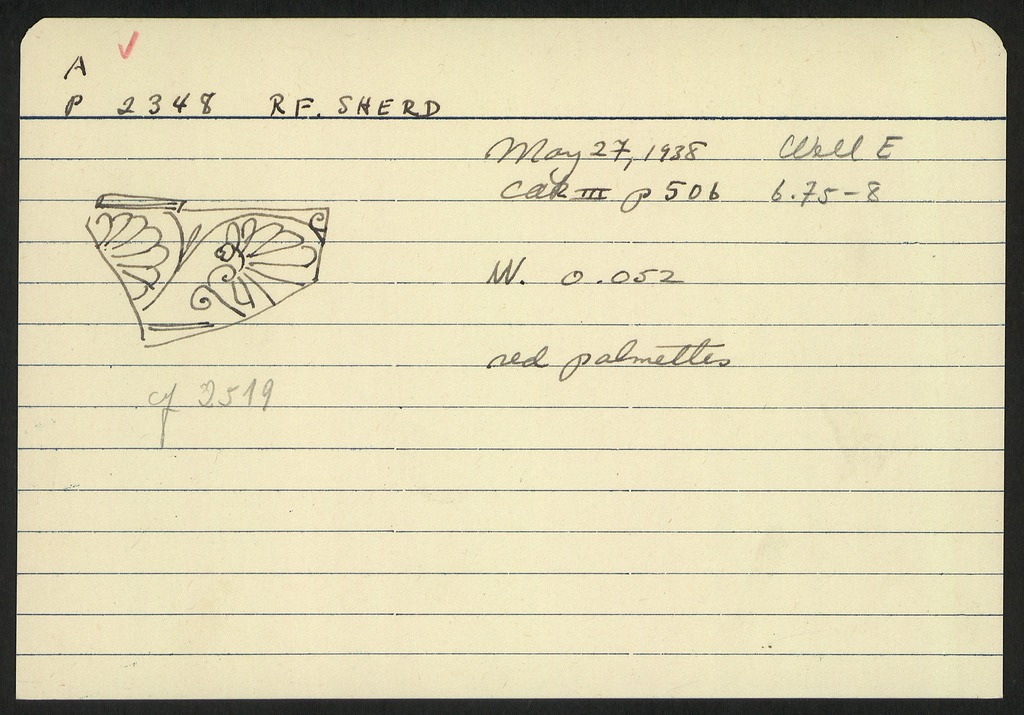 A
P 2348 RF. SHERD
May 27, 1938 Well E
III p 506 6.75-8
W. 0.052
red palmettes
cf 2519